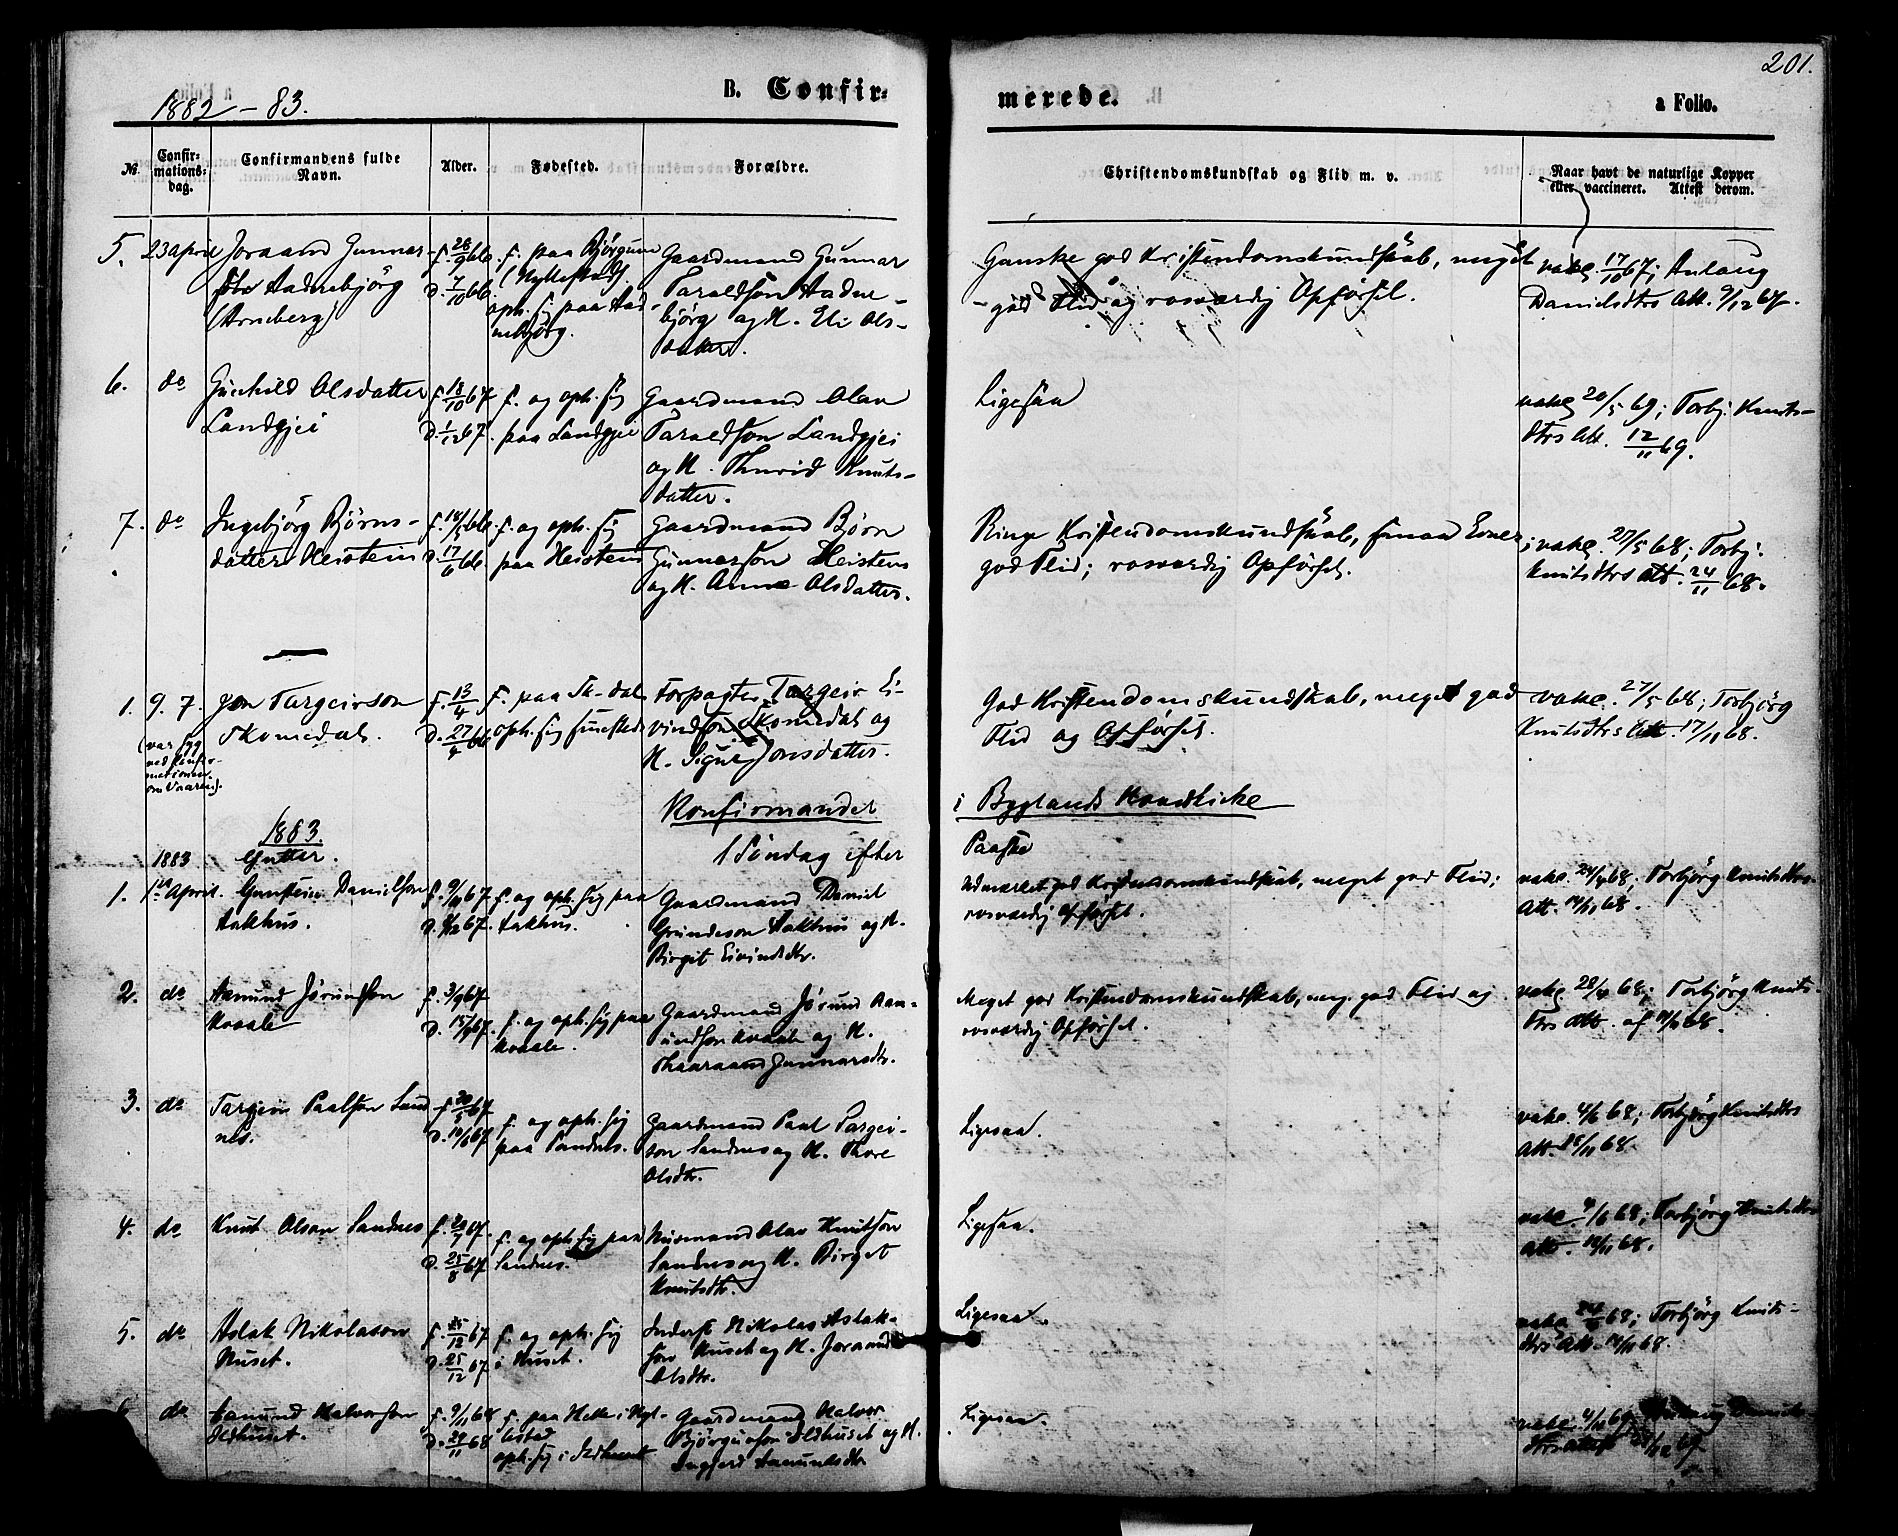 201.
1882-83.
B. Confir-
merede.
a Folio.
No.
Confir-
mations-
dag.
Confirmandens fulde
Navn.
Alder.
Fødested.
Forældre.
Christendomskundskab og Flid m. v.
Naar havt de naturlige Kopper
eller vaccineret. Attest derom.
5. 23 april Joraand Gunnars-
dtr Aadnebjörg
(Arneberg)
f. 28/9 66.
D. 7/10 66
f. paa Bjørgum
(Hyllestad)
oph. sig paa Aad-
nebjørg.
Gaardmand Gunnar
Taraldson Aadne-
bjørg og H. Eli Ols-
datter.
Ganske god Kristendomskundskab, meget
god Flid og rosværdig Opførsel.
vakc. 17/10 67; Anlaug
Danielsdtrs Att. 9/12 67.
6. do Gunhild Olsdatter
Landgjei
f. 18/10 67
D. 1/12 67.
f. og oph. sig
paa Landgjei
Gaardmand Olav
Taraldson Landgjei
og H. Thurid Knuts-
datter.
Ligesaa
vakc. 20/5 69; Torbj. Knuts-
dtrs Att. 12/11 69.
7. do Ingebjörg Björns-
datter Heistein
f. 18/5 66.
D. 17/6 66
f. og oph. sig
paa Heistein
Gaardmand Björn
Gunnarson Heistein
og H. Anne Olsdatter.
Ringe Kristendomskundskab, smaa Evner,
god Flid; rosværdig Opførsel.
vakc. 27/5 68; Torbj.
Knutsdtrs Att. 24/11 68.
1. 9. 7. Jon Targeirson
Skomedal.
(var syg
ved Konfir-
mationen
om Vaaren).
f. 13/4
D. 27/4 66
f. paa Sk-dal
oph. sig sammesteds
Forpagter Targeir Ei-
vindson Skomedal og
H. Signe Jonsdatter.
God Kristendomskundskab, meget god
Flid og Opførsel.
vakc. 27/5 68; Torbjörg
Knutsdtrs Att. 17/11 68.
Konfirmander
i Byglands Hovedkirke
1883.
Gutter.
1 Søndag efter
Paaske
1883
1. 1ste April. Gunstein Danielson
Aakhus.
f. 9/11 67.
D. 8/12 67.
f. og oph. sig paa
Aakhus.
Gaardmand Daniel
Grundeson Aakhus og H.
Birgit Eivindsdtr.
Udmærket god Kristendomskundskab, meget god Flid;
rosværdig Opførsel.
vakc. 24/4 68; Torbjörg Knutsdtrs
Att. 14/11 68.
2. do Aamund Jörundson
Kvaale
f. 3/9 67
D. 15/9 67.
f. og oph. sig paa
Kvaale.
Gaardmand Jørund Aan-
undson Kvaale og H.
Thaaraand Gunnarsdtr.
Meget god Kristendomskundskab, meg. god Flid og
rosværdig Opførsel.
vakc. 28/4 68; Torbjörg Knuts-
dtrs Att. af 14/11 68.
3. do Targein Paalson Sand
nes.
f. 20/5 67
D. 10/6 67
f. og oph. sig
paa Sandnes.
Gaardmand Paal Targei-
son Sandnes og H. Thore
Olsdtr.
Ligesaa.
vakc. 4/6 68; Torbjörg Knutsdtrs
Att. 18/11 68.
4. do Knut Olson Sandnes
f. 20/7 67.
D. 25/8 67
f. og oph. sig paa
Sandnes.
Husmand Olav Knutson
Sandnes og H. Birget
Knutsdtr.
Ligesaa.
vakc. 4/6 68; Torbjörg Knutsdtrs
Att. 14/11 68.
5. do Aslak Nikolason
Huset.
f. 25/12 67
D. 25/12 67
f. og oph. sig
i Huset.
Inderst Nikolas Aslak-
son Huset og H. Joraand
Olsdtr.
Ligesaa.
vakc. 24/4 68; Torbjörg Knuts-
dtrs Att. 14/11 68.
do Aamund Halvorson
Jldhuset.
f. 9/11 68
D. 29/11 68
f. paa Helle i Hyl-
lestad
oph. sig i Jldhuset
Gaardmand Halvor
Björgufson Jldhuset og H.
Ingjerd Aamundsdtr.
Ligesaa.